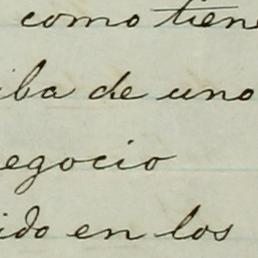 como tiene
iba de uno
egocio
ido en los